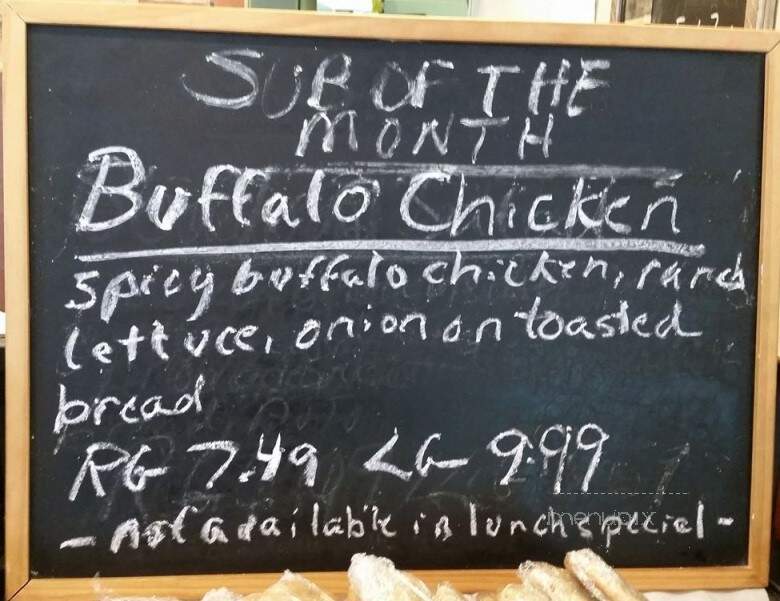 SUB OF THE
MONTH
Buffalo Chicken
spicy buffalo chicken, ranch
lettuce, onion on toasted
bread
RG 7.49 LG 9.99
- not available in lunch special -
menupix